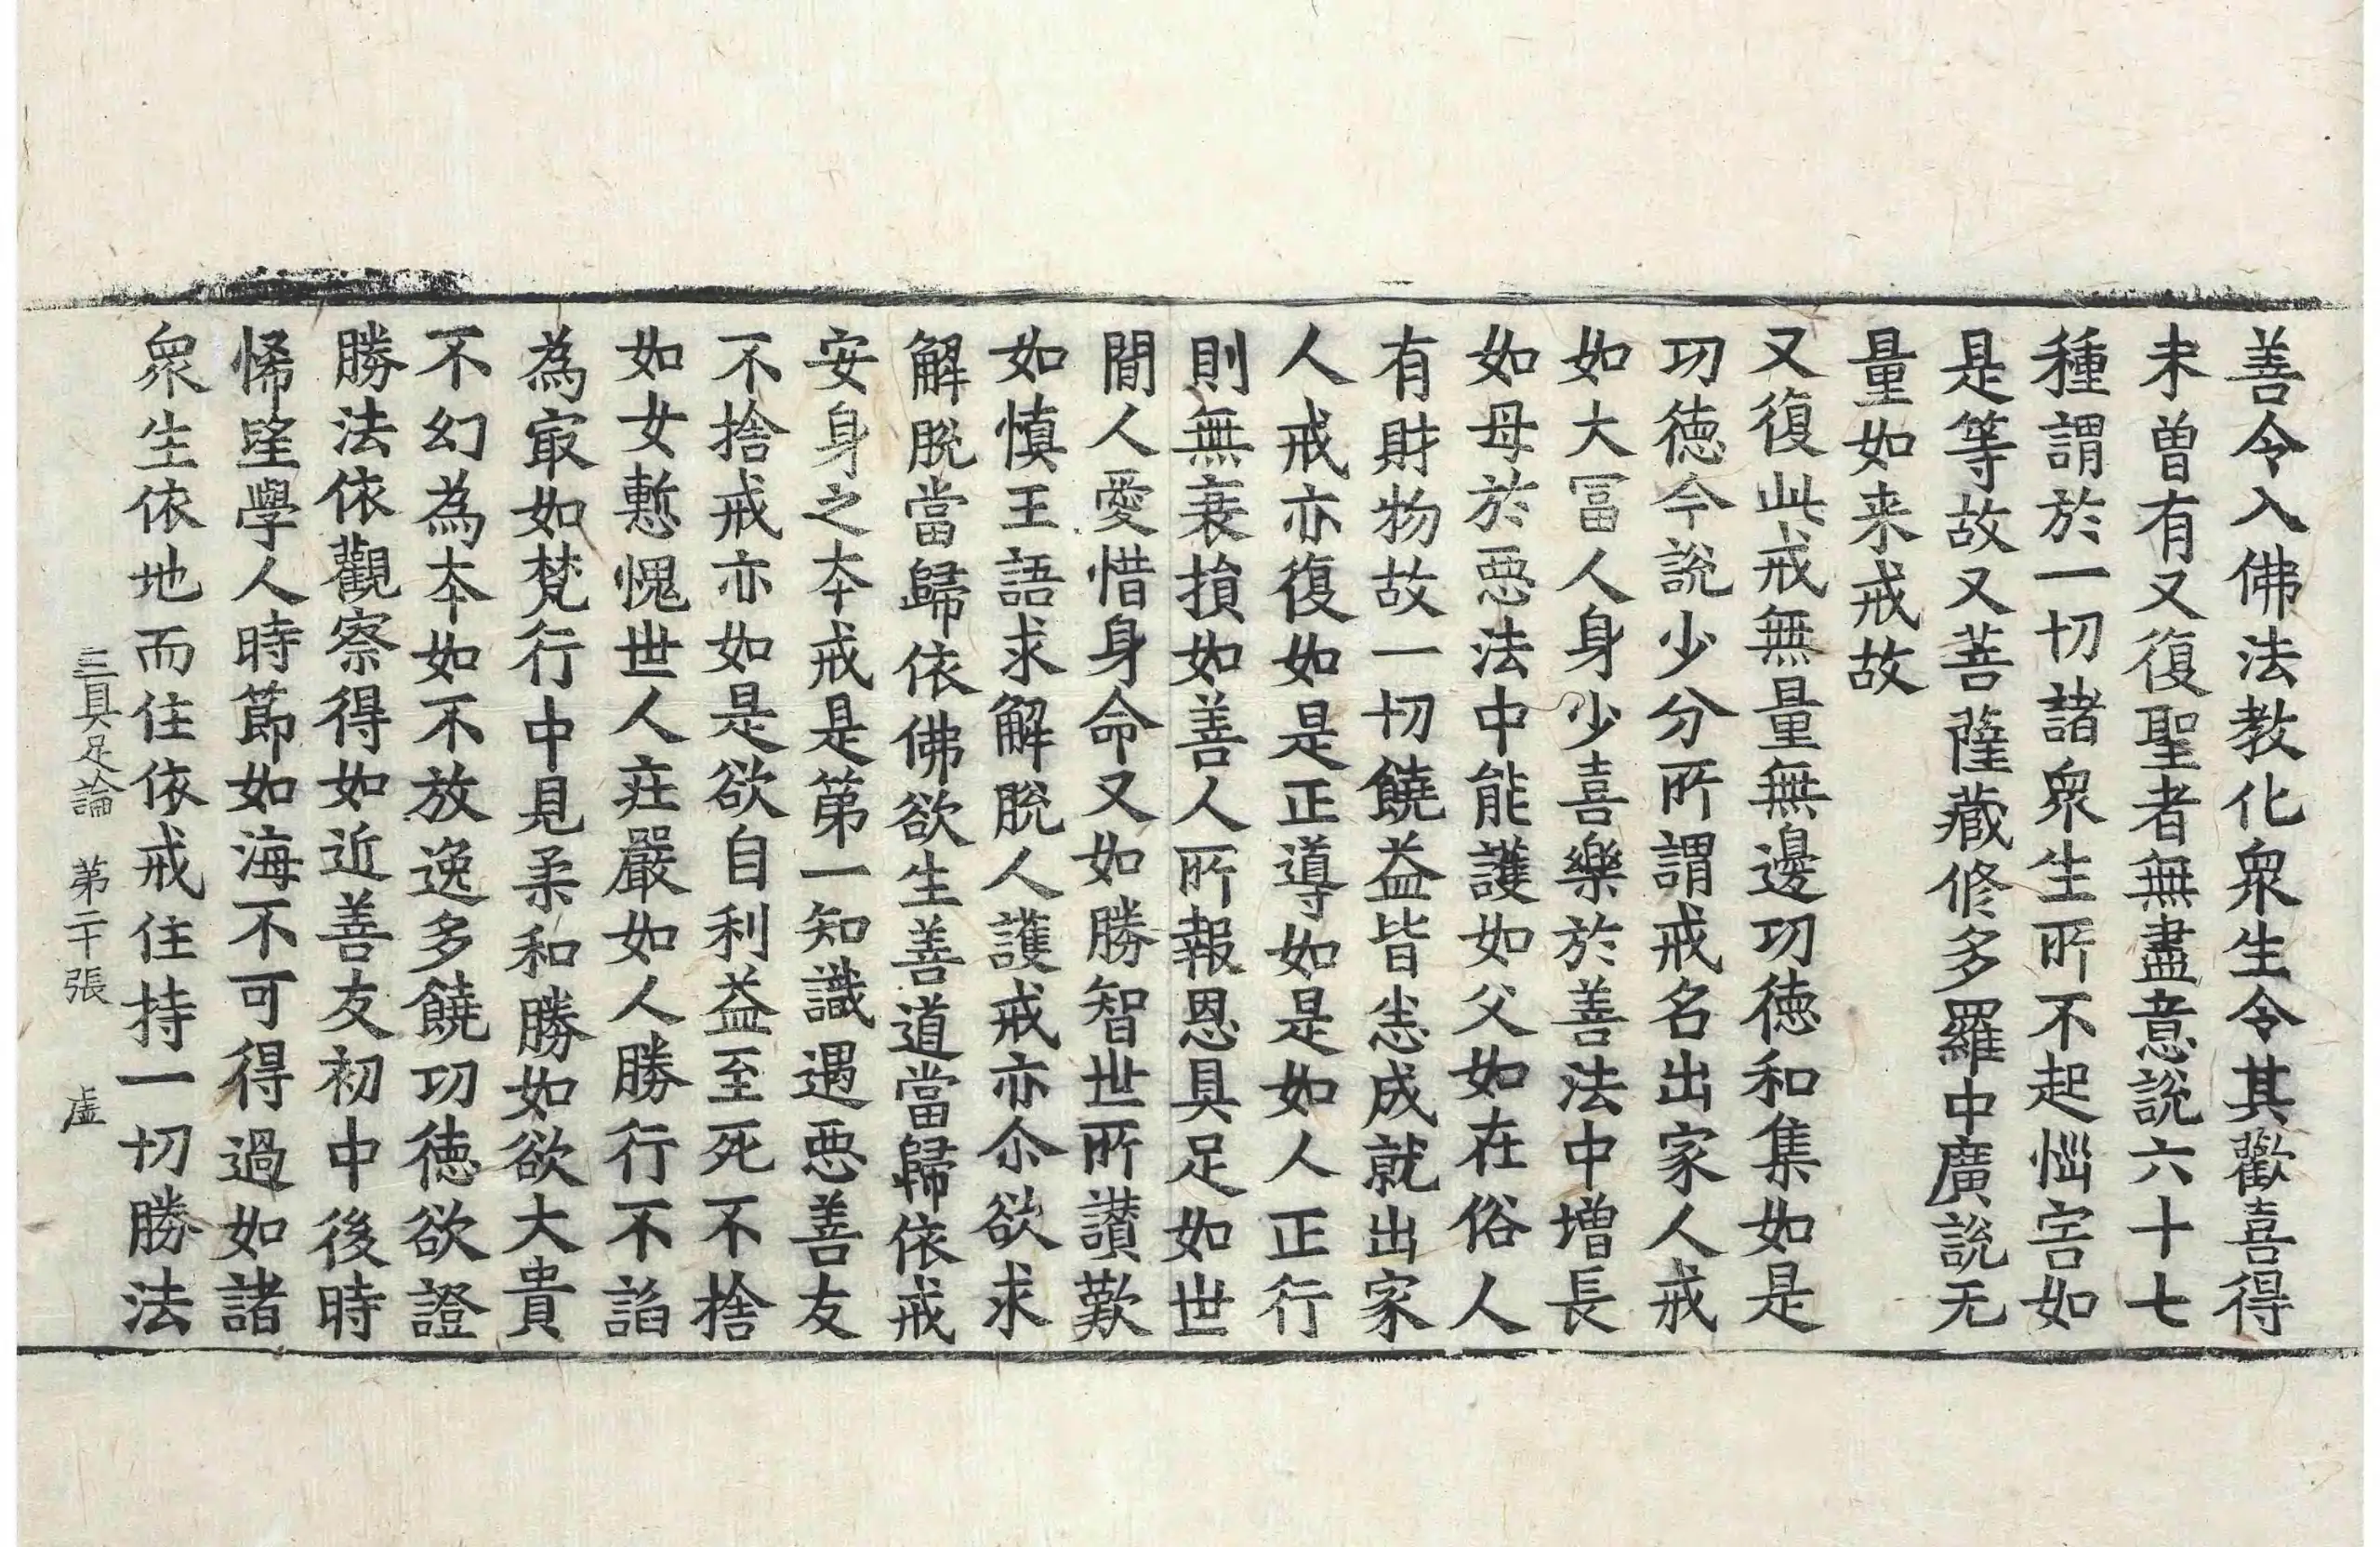 善令入佛法教化衆生令其歡喜得
未曾有又復聖者無盡意說六十七
種謂於一切諸衆生所不起惱害如
是等故又菩薩藏修多羅中廣說无
量如来戒故
又復此戒無量無邊功德和集如是
功德今說少分所謂戒名出家人戒
如大冨人身少喜樂於善法中增長
如母於惡法中能護如父如在俗人
有財物故一切饒益皆悉成就出家
人戒亦復如是正導如是如人正行
則無衰損如善人所報恩具足如世
間人愛惜身命又如勝智世所讃歎
如慎王語求解脫人護戒亦尒欲求
解脫當歸依佛欲生善道當歸依戒
安身之本戒是第一知識遇惡善友
不捨戒亦如是欲自利益至死不捨
如女慙愧世人莊嚴如人勝行不諂
為㝡如梵行中見柔和勝如欲大貴
不幻為本如不放逸多饒功德欲證
勝法依觀察得如近善友初中後時
悕望學人時節如海不可得過如諸
衆生依地而住依戒住持一切勝法
三具足論　第二十張　虛